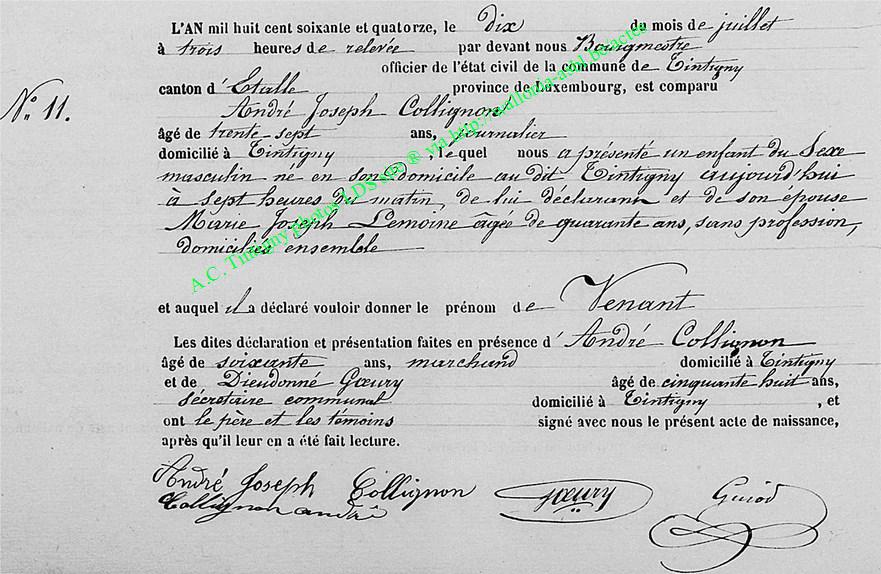 L'AN mil huit cent soixante et quatorze, le dix du mois de juillet
à trois heures de relevée par devant nous Bourgmestre
officier de l'état civil de la commune de Tintigny
canton d'Etalle province de Luxembourg, est comparu
N° 11.
André Joseph Collignon
âgé de trente-sept ans, journalier
domicilié à Tintigny, lequel nous a présenté un enfant du Sexe
masculin né en son domicile au dit Tintigny aujourd'hui
à sept heures du matin, de lui déclarant et de son épouse
Marie Joseph Lemoine âgée de quarante ans, sans profession,
domiciliés ensemble
et auquel il a déclaré vouloir donner le prénom de Venant
Les dites déclaration et présentation faites en présence d'André Collignon
âgé de soixante ans, marchand domicilié à Tintigny
et de Dieudonné Gœury âgé de cinquante huit ans,
Sécretaire communal domicilié à Tintigny, et
ont le père et les témoins signé avec nous le présent acte de naissance,
après qu'il leur en a été fait lecture.
André Joseph Collignon Gœury
Collignon andré
A.C. Tintigny photos LDS sc ® via http://wallonia-asbl.be/actes